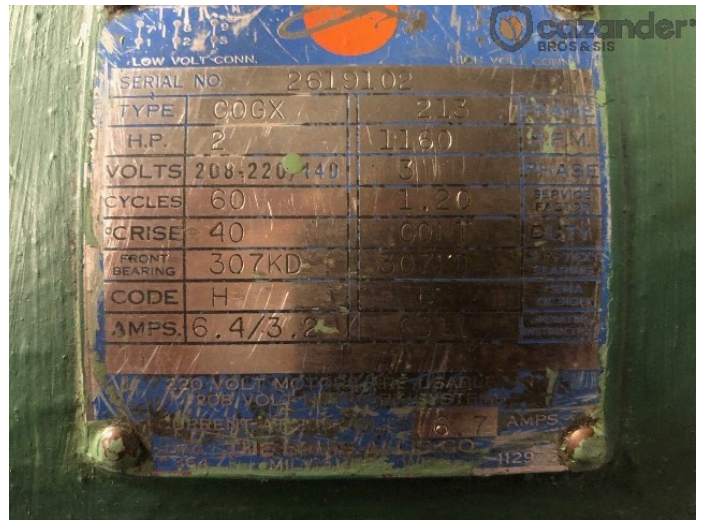 cazander
BROS & SIS
LOW VOLT CONN. HIGH VOLT CONN.
SERIAL NO. 2619102
TYPE COGX 213 FRAME
H.P. 2 1160 R.P.M.
VOLTS 208-220/440 3 PHASE
CYCLES 60 1.20 SERVICE FACTOR
°C RISE 40 CONT DUTY
FRONT BEARING 307KD
CODE H
AMPS. 6.4/3.2
220 VOLT MOTORS ARE USABLE
208 VOLT SYSTEM
CURRENT 6.7 AMPS
THE LOUIS ALLIS CO.
MILW
1129